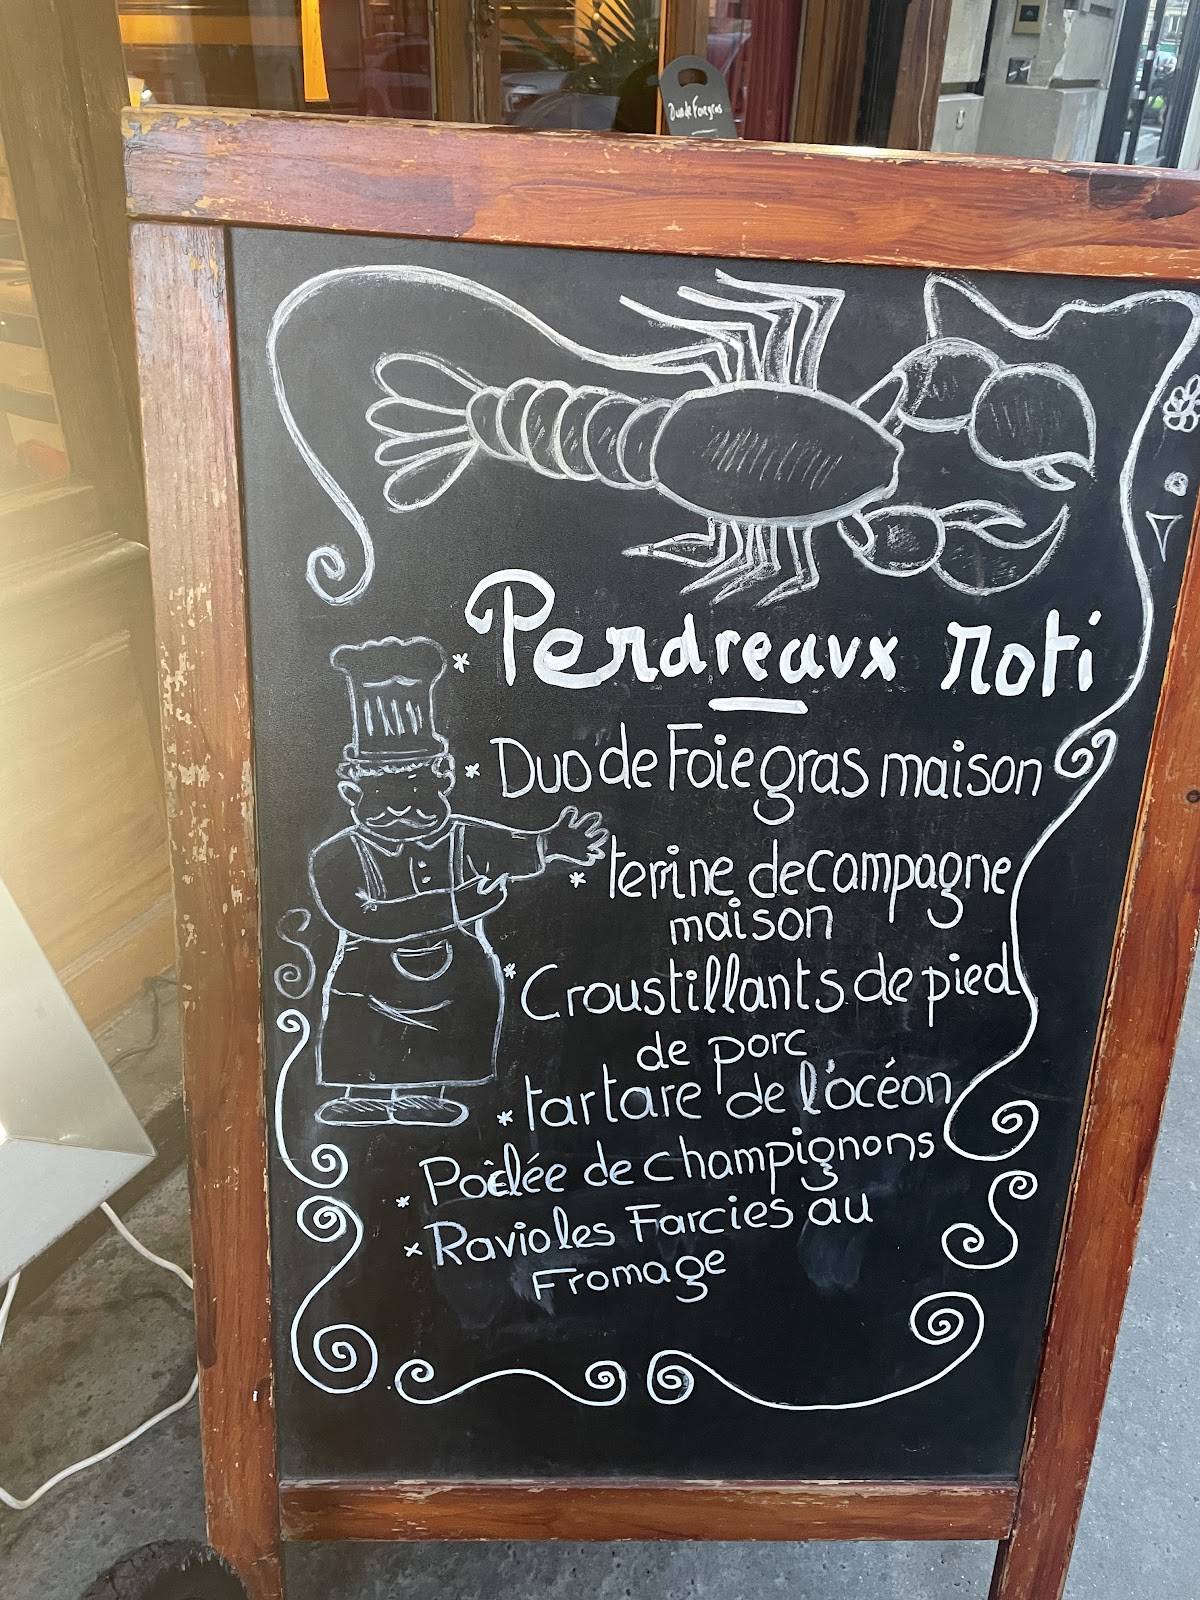 Duo de Foie gras
* Perdreaux roti
* Duo de Foie gras maison
* terrine de campagne
maison
* Croustillants de pied
de porc
* tartare de l'océon
* Poêlée de champignons
* Ravioles Farcies au
Fromage